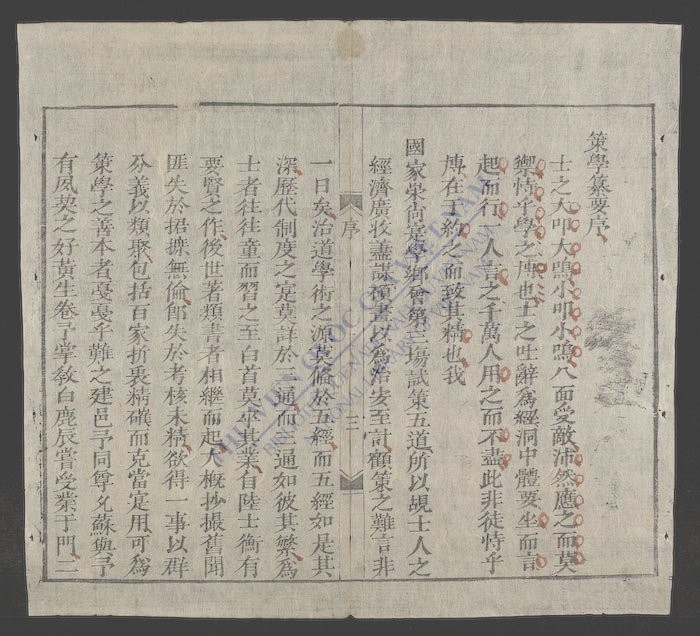 策學纂要序
士之大叩大鳴小叩小鳴八面受敵沛然應之而莫
禦恃乎學之博也士之吐辭為經洞中體要坐而言
起而行一人言之千萬人用之而不盡此非徒恃乎
博在于約之而致其精也我
國家崇尚寔學鄉會第三場試策五道所以覘士人之
經濟廣收藎謀碩畫以為治安至計顧策之難言非
序
三
一日矣治道學術之源莫備於五經而五經如是其
深歷代制度之寔莫詳於三通而三通如彼其繁為
士者往往童而習之至白首莫卒其業自陸士衡有
要覽之作後世著類書者相繼而起大概抄撮舊聞
匪失於搭摭無倫即失於考核未精欲得一事以群
分義以類聚包括百家折衷精礭而克當寔用可為
策學之善本者戞戞乎難之建邑予同尊兄蘇與予
有夙英之好黃生卷予掌教白鹿辰嘗受業于門二
THƯ VIỆN QUỐC GIA VIỆT NAM
BIBLIOTHÈQUE NATIONALE DU VIETNAM
NATIONAL LIBRARY OF VIETNAM